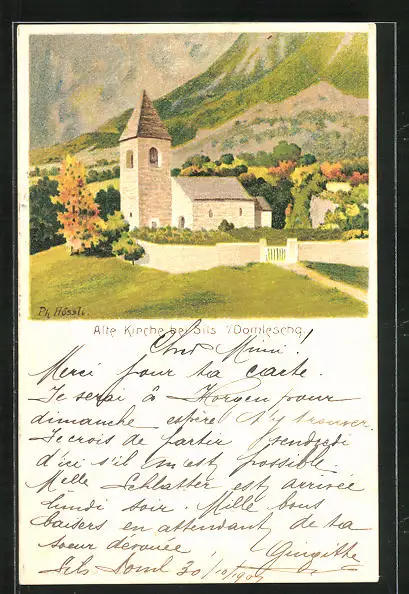 Ph. Hössli.
Alte Kirche bei Sils i/Domleschg.
Mimi!
Merci pour ta carte.
Je serai à Horgen pour
dimanche espère t'y trouver.
Je crois de partir vendredi
d'ici s'il m'est possible.
Melle Schlatter est arrivée
lundi soir. Mille bons
baisers en attendant de ta
soeur dévouée
Sils Doml 30/10/190